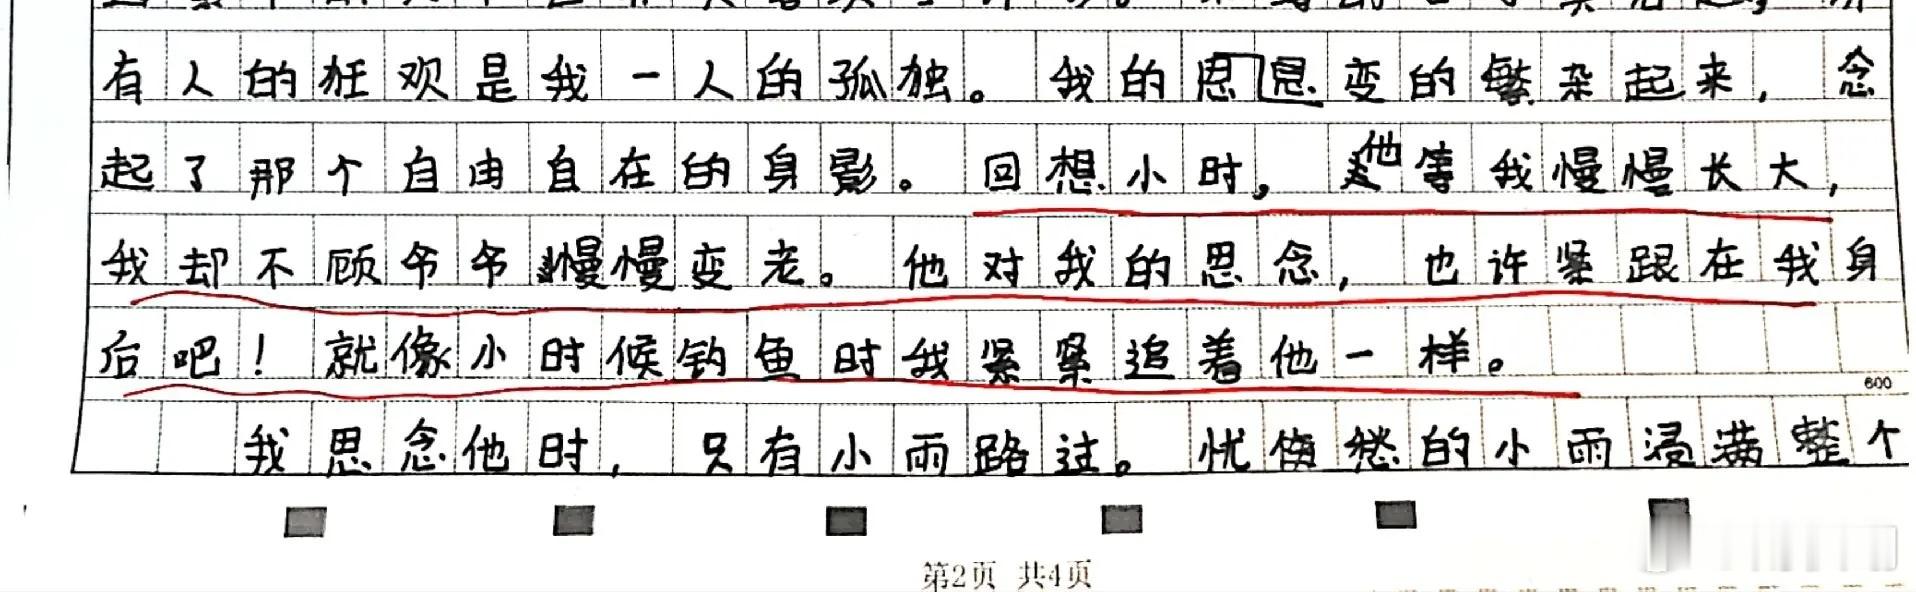 有人的狂欢是我一人的孤独。我的思思变的繁杂起来，念
起了那个自由自在的身影。回想小时，他等我慢慢长大，
我却不顾爷爷慢慢变老。他对我的思念，也许紧跟在我身
后吧！就像小时候钓鱼时我紧紧追着他一样。
600
我思念他时，只有小雨路过。忧愁的小雨浸满整个
第2页 共4页